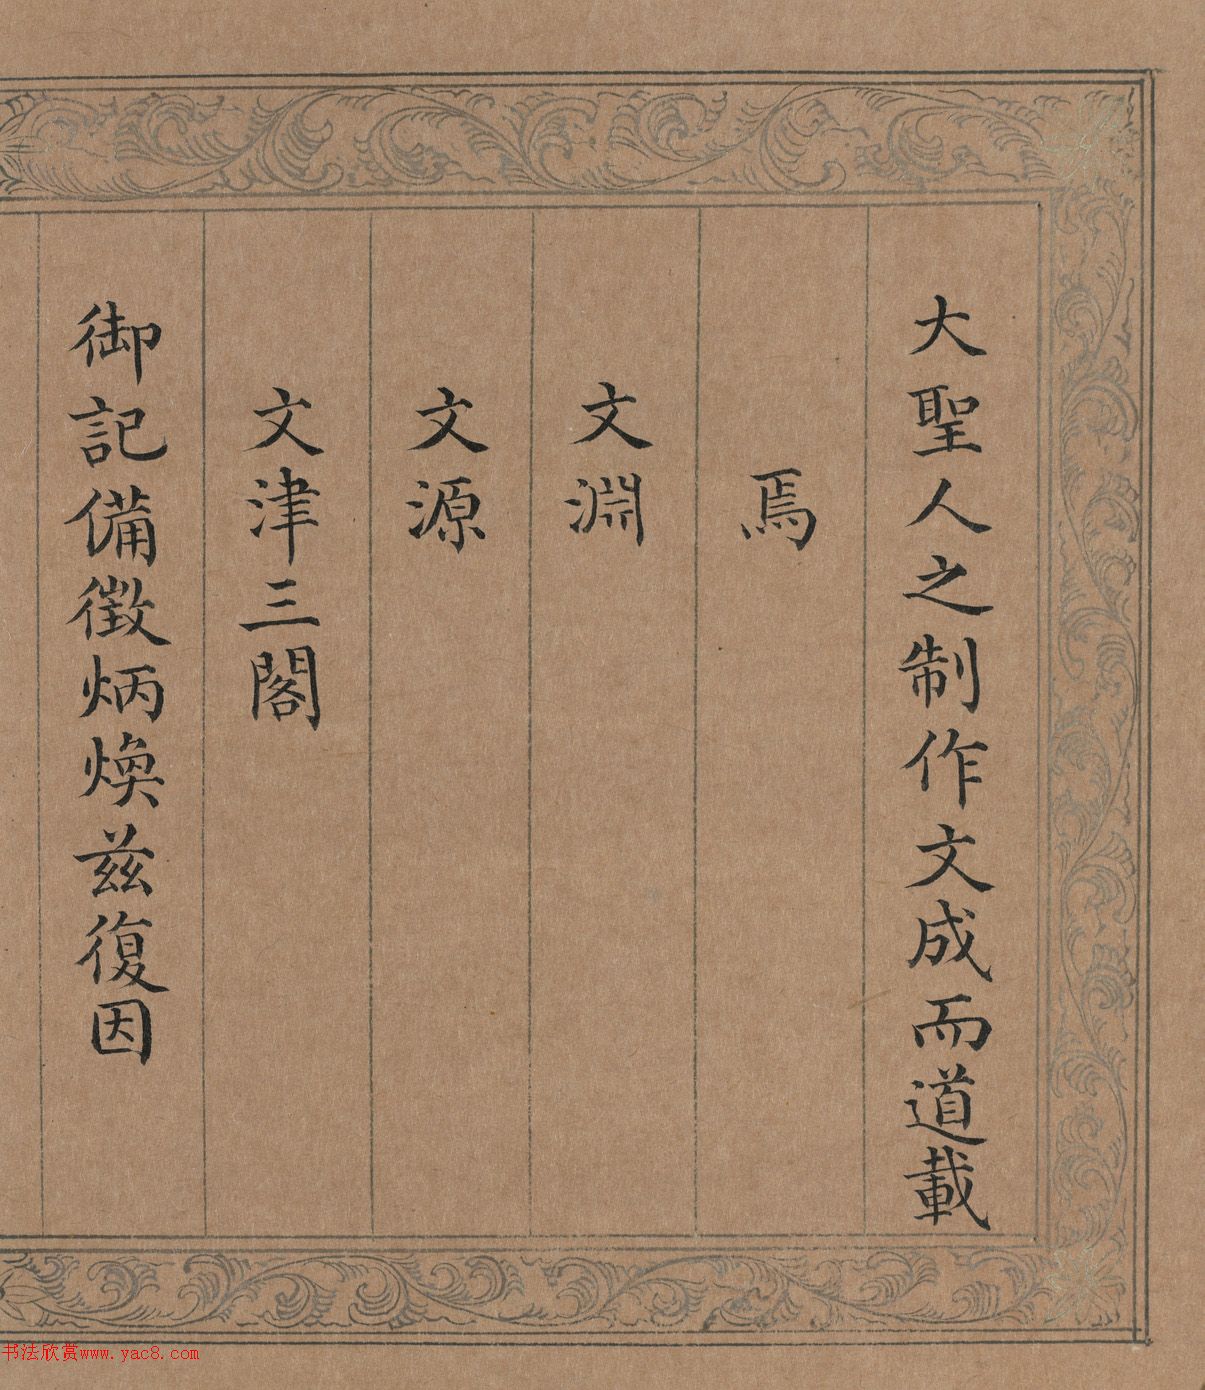 大聖人之制作文成而道載
焉
文淵
文源
文津三閣
御記備徵炳煥茲復因
书法欣赏www.yac8.com